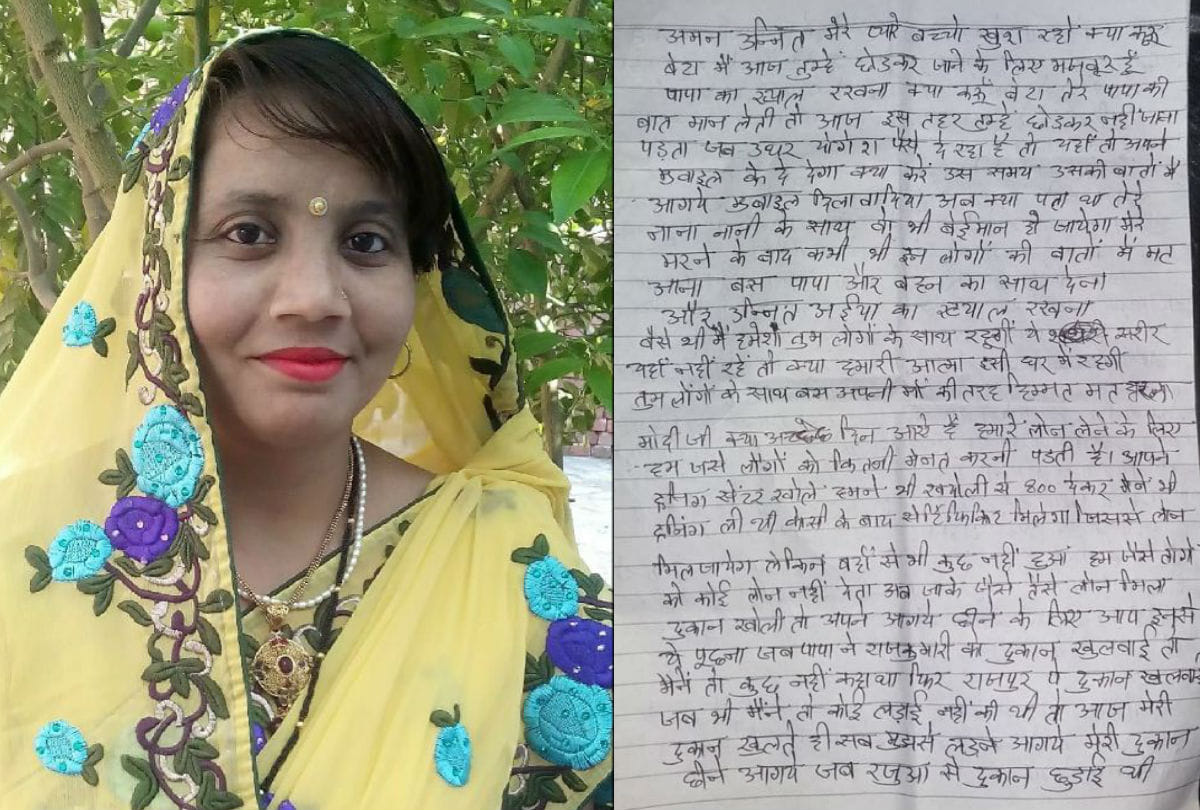 अमन उन्नत मेरे प्यारे बच्चो खुश रहो क्या करू
बेटा मैं आज तुम्हें छोडकर जाने के लिए मजबूर हूँ
पापा का ख्याल रखना क्या करूँ बेटा तेरे पापा की
बात मान लेती तो आज इस तहर तुम्हे छोडकर नही जाना
पडता जब उधर योगेश पैसे दे रहा है तो यहाँ तो अपने
मुबाइल के दे देगा क्या करें उस समय उसकी बातों मैं
आगये मुबाइल दिलावादिया अब क्या पता था तेरे
नाना नानी के साथ वो भी बेईमान हो जायेगा मेरे
मरने के बाद कभी भी इन लोगों की बातों में मत
आना बस पापा और बहन का साथ देना
और उन्नत भईया का ख्याल रखना
वैसे भी मैं हमेशा तुम लोगों के साथ रहूगीं ये शरीर
यहाँ नहीं रहें तो क्या हमारी आत्मा इसी घर में रहेगी
तुम लोंगों के साथ बस अपनी माँ की तरह हिम्मत मत हारना
मोदी जी क्या अच्छे दिन आऐ है हमारे लोन लेने के लिए
हम जसे लोगों को कितनी मेनत करनी पडती है। आपने
ट्रनिग सेंटर खोले हमने भी से 800 देकर मैने भी
ट्रीनिंग ली थी के बाद मिलेगा जिससे लोन
मिल जायेगा लेकिन वहाँ से भी कुछ नहीं हुआ हम जैसे लोगो
को कोई लोन नहीं देता अब जाके जैसे तैसे लोन मिला
दुकान खोली तो अपने आगये छीने के लिए आप इनसे
ये पूछना जब पापा ने राजकुमारी की दुकान खुलवाई तो
मैनें तो कुछ नहीं कहा था फिर राजपुर पे दुकान खुलवाई
जब भी मैंने तो कोई लडाई नहीं की थी तो आज मेरी
दुकान खुलते ही सब मुझसे लडने आगये मेरी दुकान
छीने आगये जब रजुआ से दुकान छुडाई थी